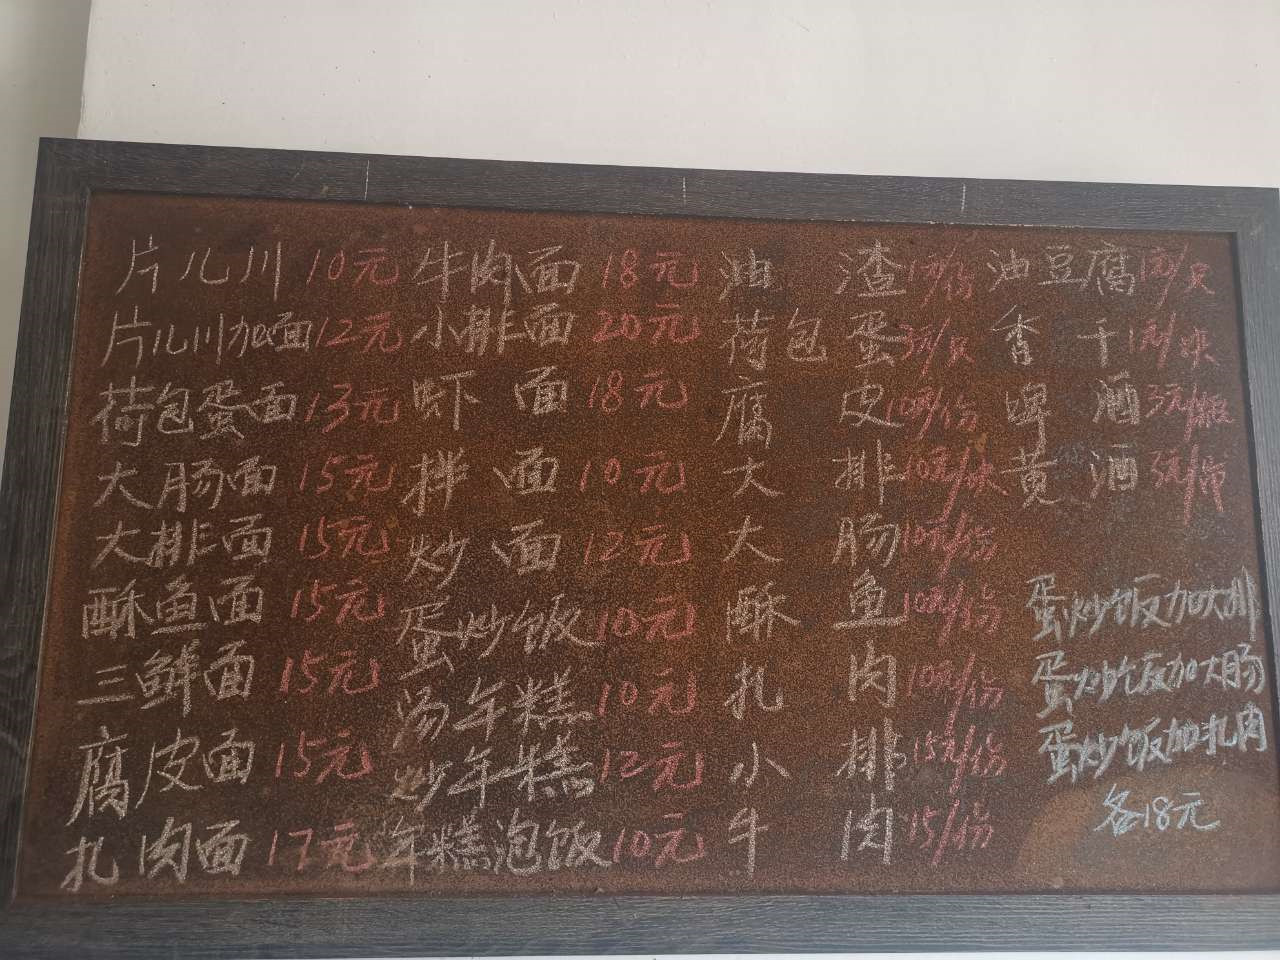 片儿川 10元 牛肉面 18元 油渣 1元/份 油豆腐 1元/只
片儿川加面 12元 小排面 20元 荷包蛋 3元/只 香干 1元/块
荷包蛋面 13元 虾面 18元 腐皮 10元/份 啤酒 5元/瓶
大肠面 15元 拌面 10元 大排 10元/块 黄酒 5元/份
大排面 15元 炒面 12元 大肠 10元/份
酥鱼面 15元 蛋炒饭 10元 酥鱼 10元/份 蛋炒饭加大排
三鲜面 15元 汤年糕 10元 扎肉 10元/份 蛋炒饭加大肠
腐皮面 15元 炒年糕 12元 小排 15元/份 蛋炒饭加扎肉
扎肉面 17元 年糕泡饭 10元 牛肉 15/份 各18元